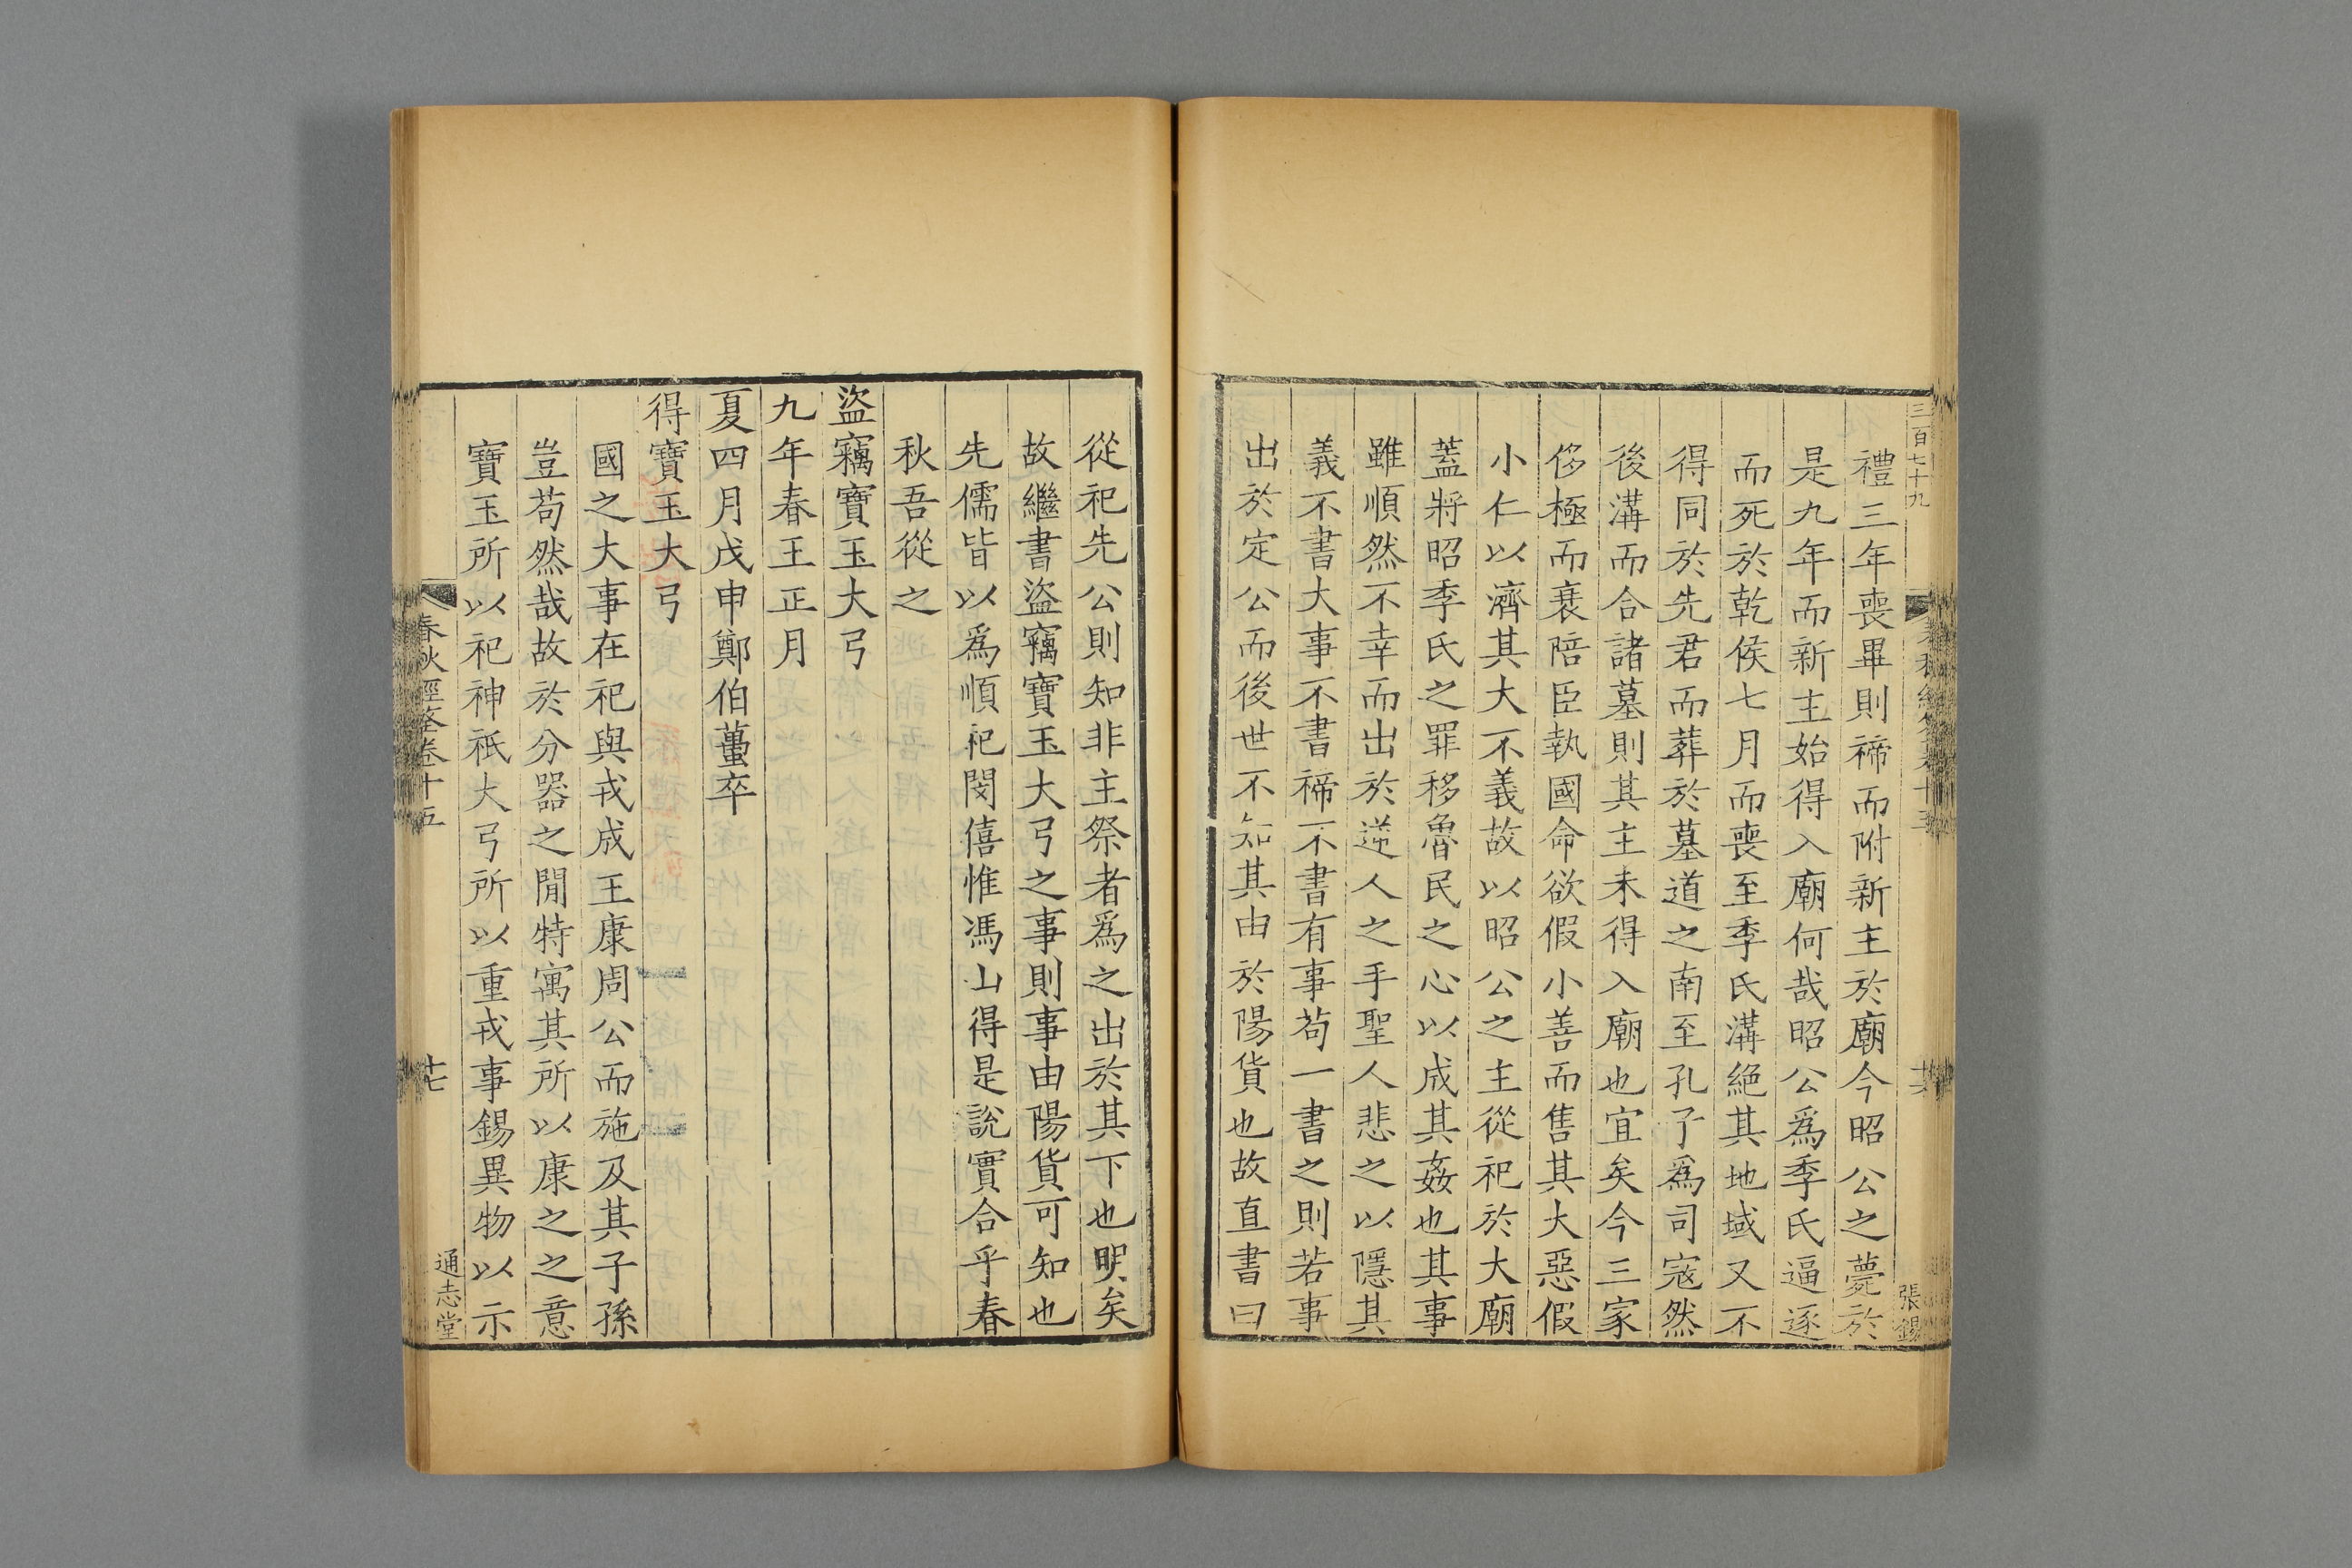 三百七十九
禮三年喪畢則禘而附新主於廟今昭公之薨於
是九年而新主始得入廟何哉昭公爲季氏逼逐
而死於乾侯七月而喪至季氏溝絕其地域又不
得同於先君而葬於墓道之南至孔子爲司寇然
後溝而合諸墓則其主未得入廟也宜矣今三家
侈極而衰陪臣執國命欲假小善而售其大惡假
小仁以濟其大不義故以昭公之主從祀於大廟
蓋將昭季氏之罪移魯民之心以成其姦也其事
雖順然不幸而出於逆人之手聖人悲之以隱其
義不書大事不書禘不書有事苟一書之則若事
出於定公而後世不知其由於陽貨也故直書曰
張錫
從祀先公則知非主祭者爲之出於其下也明矣
故繼書盜竊寶玉大弓之事則事由陽貨可知也
先儒皆以爲順祀閔僖惟馮山得是說實合乎春
秋吾從之
盜竊寶玉大弓
九年春王正月
夏四月戊申鄭伯蠆卒
得寶玉大弓
國之大事在祀與戎成王康周公而施及其子孫
豈苟然哉故於分器之閒特寓其所以康之之意
寶玉所以祀神祇大弓所以重戎事錫異物以示
春秋經筌卷十五
十七
通志堂